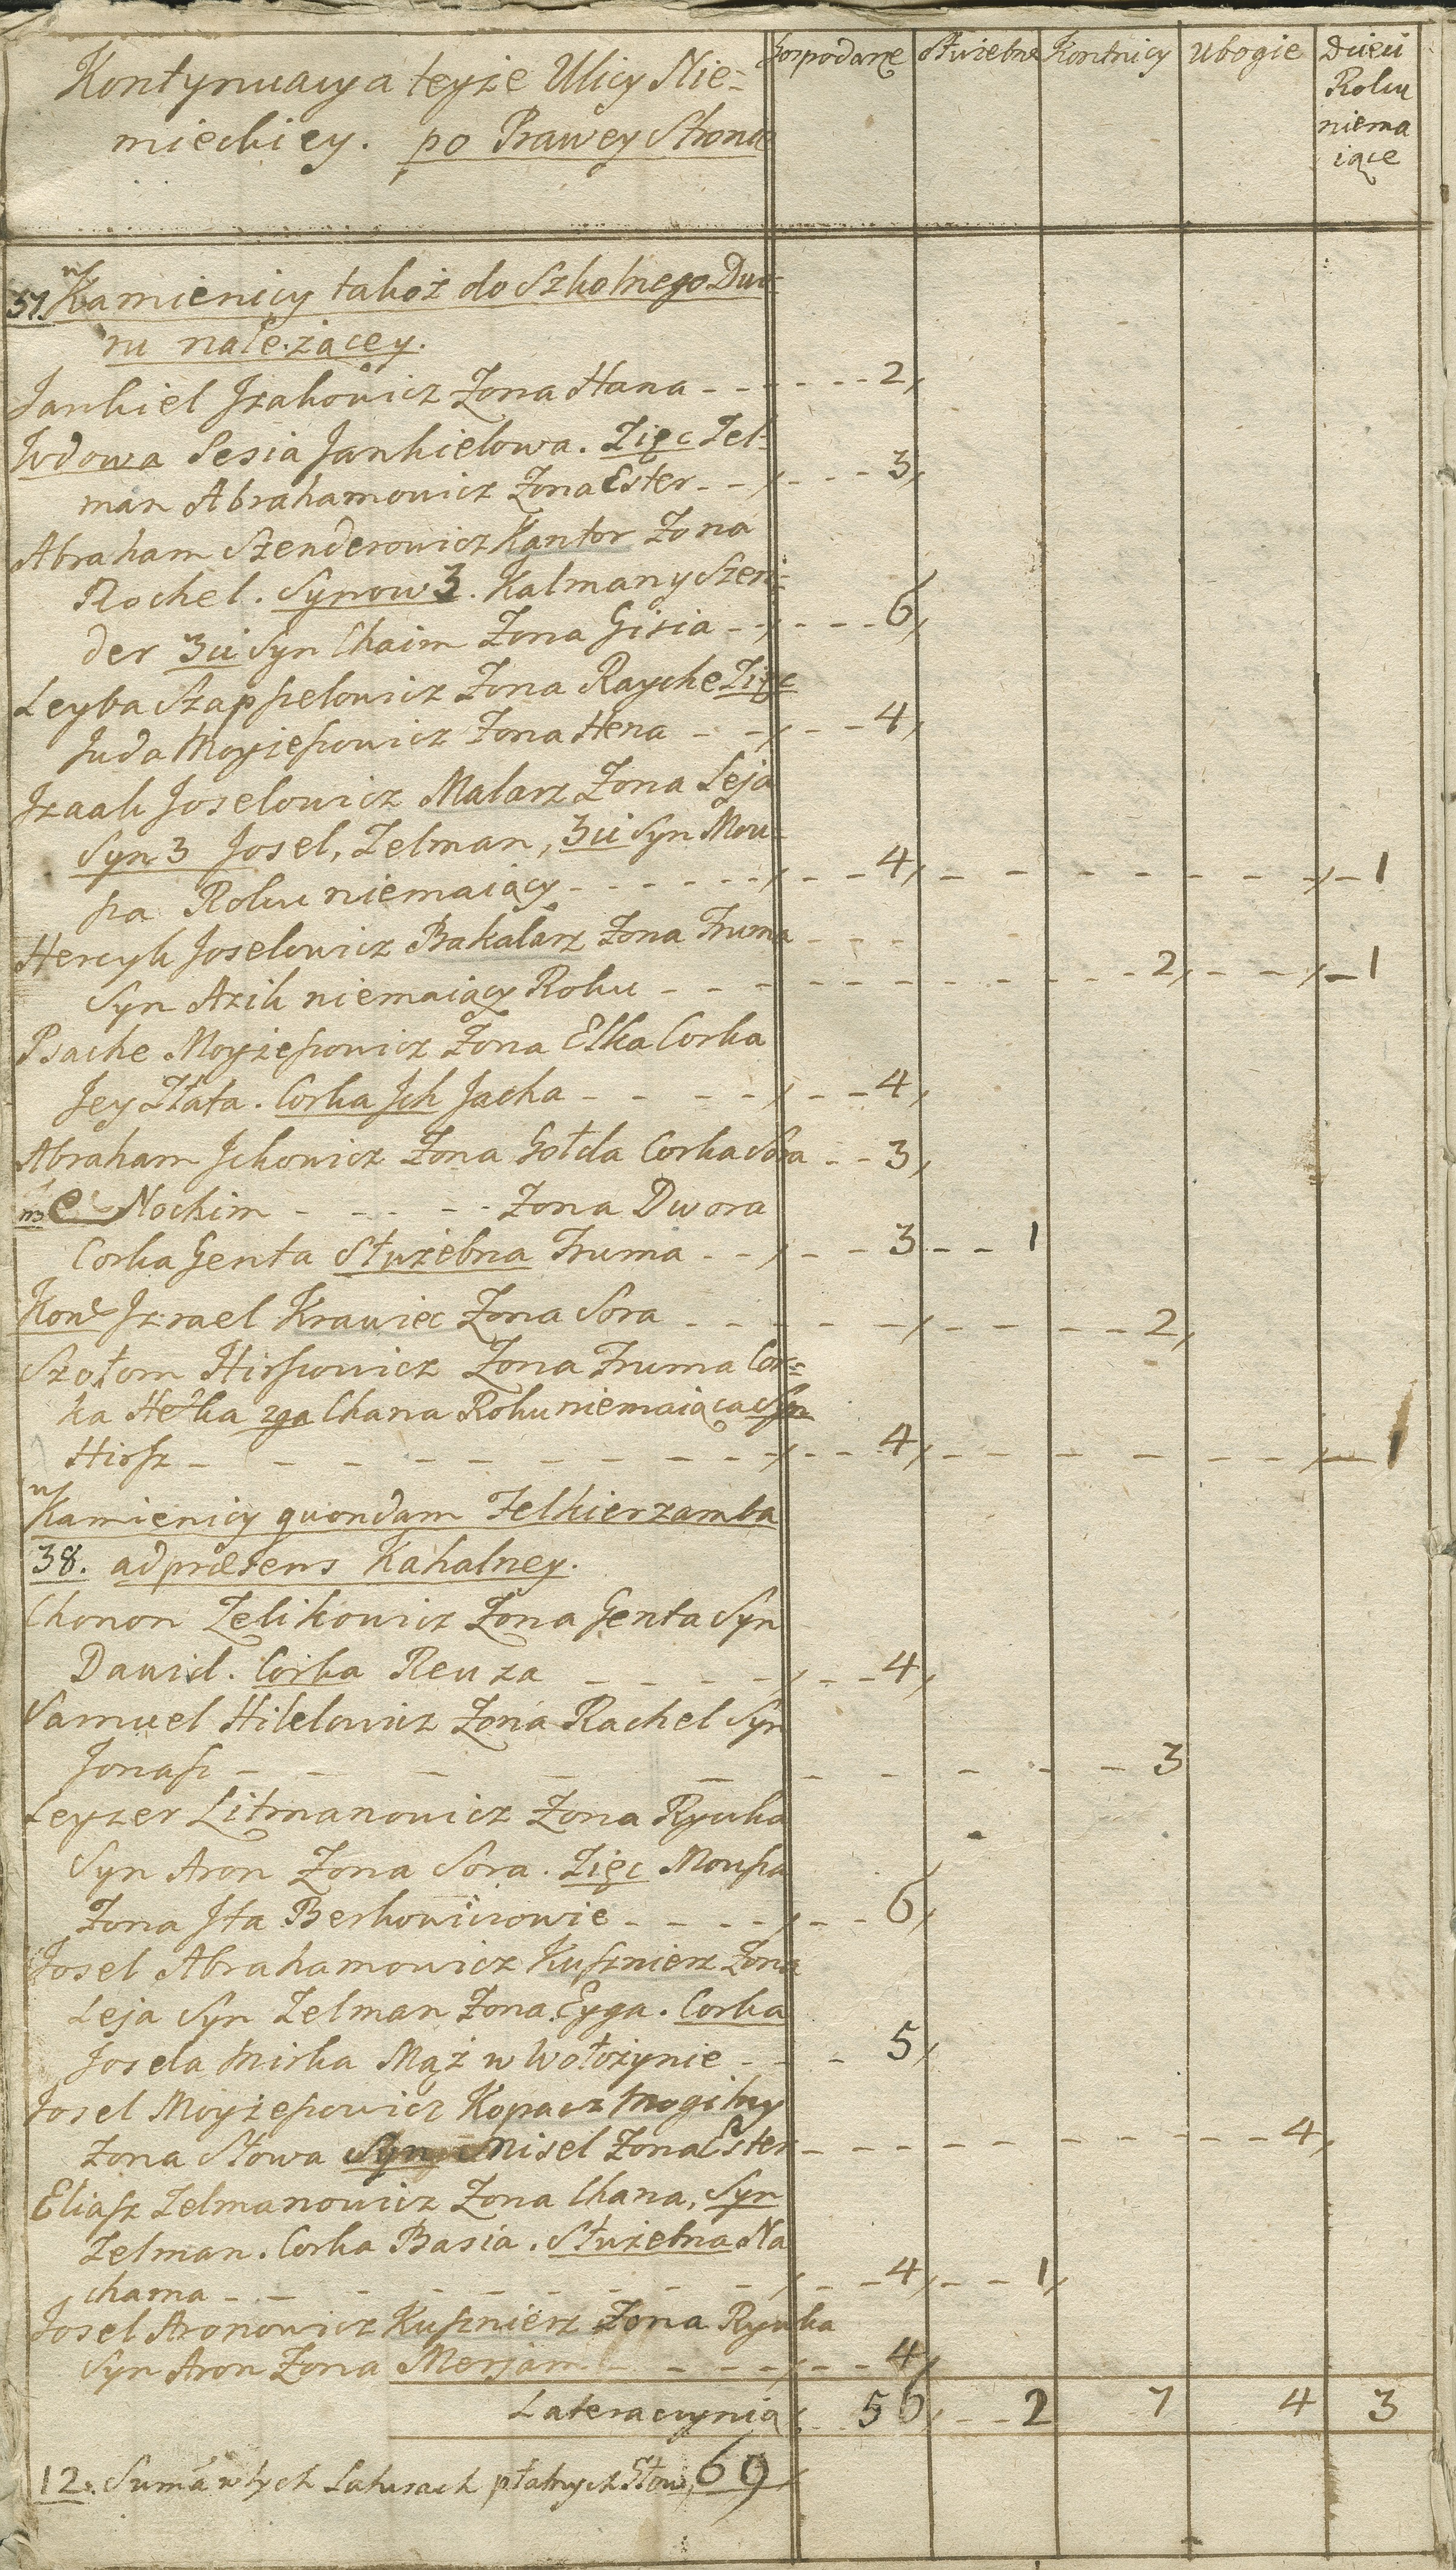 Kontynuacya teyże Ulicy Nie=
mieckiey. po Prawey Stronie
Gospodarze Służebne Kontnicy Ubogie Dzieci
Roku
niema
iące
w
37. Kamienicy takoż do Szkolnego Dwo=
ru należącey.
Jankiel Jzakowicz Zona Hana - - - - - - 2,
Wdowa Sesia Jankielowa. Zięc Zel=
man Abrahamowicz Zona Ester - - - - - 3,
Abraham Szenderowicz Kantor Zona
Rochel. Synow 3. Kalman y Szen=
der 3ci Syn Chaim Zona Gisia - - - - - 6,
Leyba Szapszelowicz Zona Rayche Zięc
Juda Moyżeszowicz Zona Hena - - - - 4,
Jzaak Joselowicz Malarz Zona Leja
Syn 3 Josel, Zelman, 3ci Syn Mow=
sza Roku niemaiący - - - - - - - - 4, - - - - - - - 1
Hercyk Joselowicz Bakalarz Zona Fruma - - -
Syn Azik niemaiący Roku - - - - - - - - - - - 2, - - - 1
Psache Moyżeszowicz Zona Elka Corka
Jey Złata. Corka Jch Jacha - - - - - - 4,
Abraham Jckowicz Zona Gołda Corka Sora - - 3,
Nochim - - - - - Zona Dwora
Corka Genta Służebna Fruma - - - - - 3 - - 1
Kont Jzrael Krawiec Zona Sora - - - - - - - - - - 2,
Szołom Hirszowicz Zona Fruma Cor=
ka Hetka 2ga Chana Roku niemaiąca Syn
Hirsz - - - - - - - - - - - - 4, - - - - - - - 1
w
Kamienicy quondam Felkierzamba
38. ad præsens Kahalney.
Chonon Zelikowicz Zona Genta Syn
Dawid. Corka Reuza - - - - - - 4,
Samuel Hilelowicz Zona Rachel Syn
Jonasz - - - - - - - - - - 3
Leyzer Litmanowicz Zona Rywka
Syn Aron Zona Sora. Zięc Mowsza
Zona Jta Berkowiczowie - - - - - - 6,
Josel Abrahamowicz Kusznierz Zona
Leja Syn Zelman Zona Eyga. Corka
Josela Mirka Mąż w Wołożynie - - - 5,
Josel Moyżeszowicz Kopacz Mogiłny
Zona Słowa Syn Misel Zona Ester - - - - - - - - - - 4,
Eliasz Zelmanowicz Zona Chana, Syn
Zelman. Corka Basia. Służebna Na
chama - - - - - - - - - - - 4, - - 1,
Josel Aronowicz Kusznierz Zona Rywka
Syn Aron Zona Merjam - - - - - - - 4,
Lateracynia 56, - - 2 7 4 3
12. Suma w tych Laterach płatnych Głow, 69